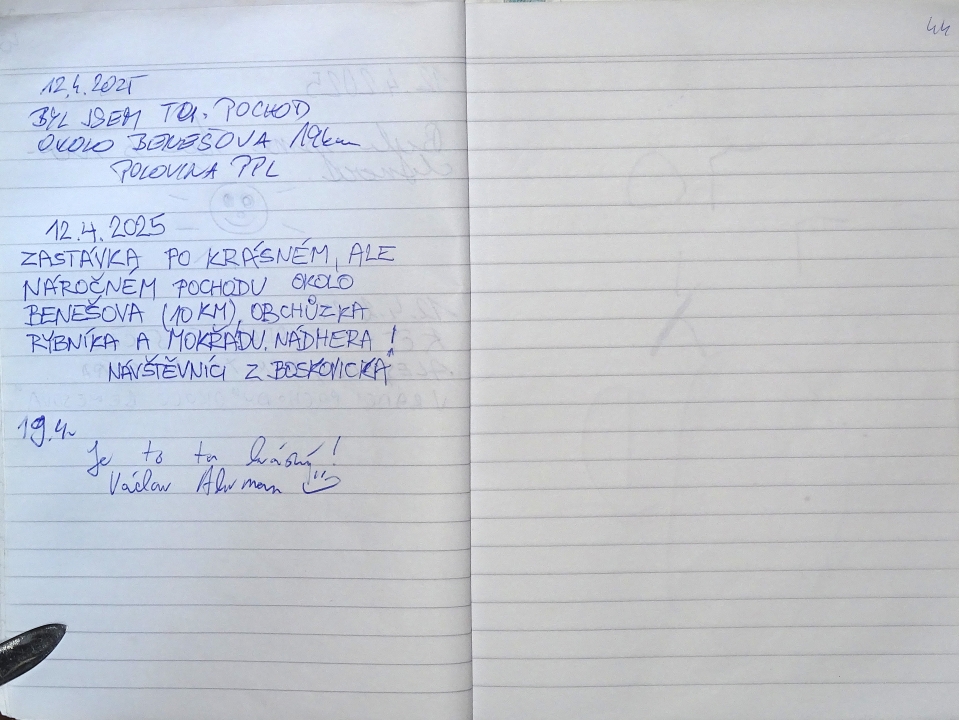 44
12.4.2025
BYL JSEM POCHOD
OKOLO BENEŠOVA 19km
POLOVINA PPL
12.4.2025
ZASTÁVKA PO KRÁSNÉM, ALE
NÁROČNÉM POCHODU OKOLO
BENEŠOVA (10 KM), OBCHŮZKA
RYBNÍKA A MOKŘADU. NÁDHERA!
NÁVŠTĚVNÍCI Z BOSKOVICKA
19.4.
Je to tu krásný!
Václav